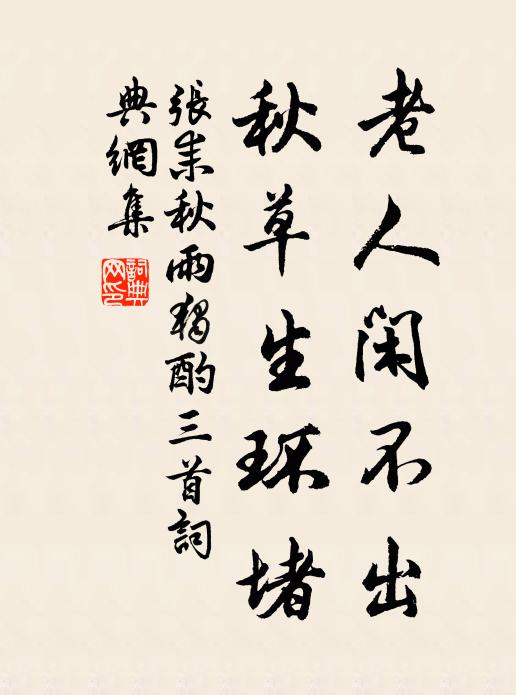 老人闲不出
秋草生环堵
張耒秋雨獨酌三首詞
典網集
詞典
网印